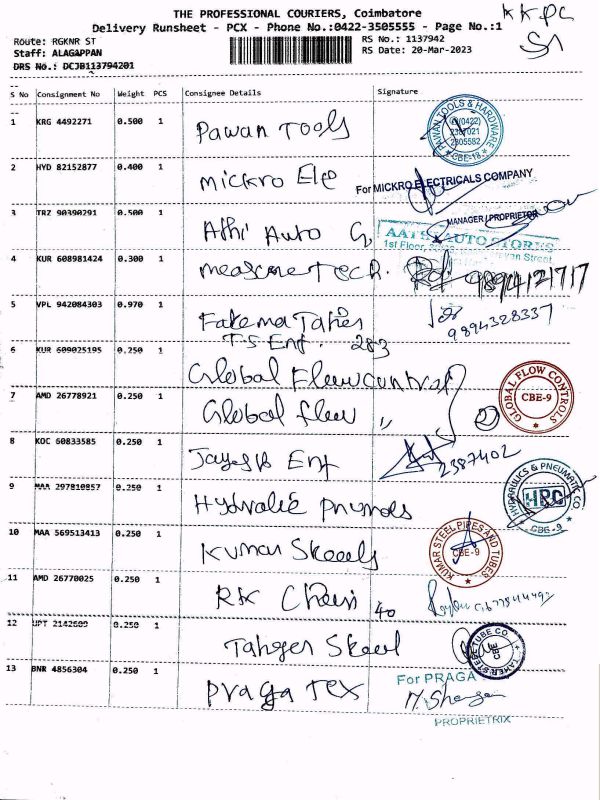 THE PROFESSIONAL COURIERS, Coimbatore
KKPC
Delivery Runsheet - PCX - Phone No.:0422-3505555 - Page No.:1
Route: RGKNR ST
RS No.: 1137942
Staff: ALAGAPPAN
RS Date: 20-Mar-2023
DRS No.: DCJB113794201
S No Consignment No Weight PCS Consignee Details Signature
1 KRG 4492271 0.500 1 Pawan Tools
PAWAN TOOLS & HARDWARE (0422) 2387021 2305582 CBE-18
2 HYD 82152877 0.400 1 Mickro Ele
For MICKRO ELECTRICALS COMPANY
MANAGER / PROPRIETOR
3 TRZ 90390291 0.500 1 Athi Auto G
AUTO STORES
1st Floor, Street
4 KUR 608981424 0.300 1 measurertech. 9894121717
5 VPL 942084303 0.970 1 Fatema Taher
T.S Enf. 283
9894328337
6 KUR 609025195 0.250 1 Global Flowcontrol
7 AMD 26778921 0.250 1 Global flow ,, 2
GLOBAL FLOW CONTROLS CBE-9
8 KOC 60833585 0.250 1 Jayesh Enf
2387402
9 MAA 297810857 0.250 1 Hydralic pnumds
HYDRAULICS & PNEUMATIC CO HRC CBE-9
10 MAA 569513413 0.250 1 Kumar Skeels
KUMAR STEEL PIPES AND TUBES CBE-9
11 AMD 26770025 0.250 1 RK Chain 40
12 UPT 2142609 0.250 1 Taher Skeel
TAHER STEEL TUBE CO CBE
13 BNR 4856304 0.250 1 Praga Tex
For PRAGA
PROPRIETRIX